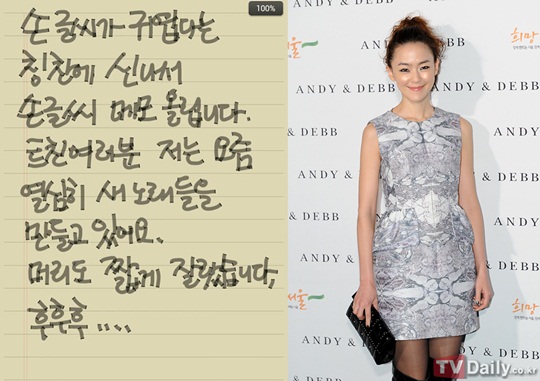 100%
손글씨가 귀엽다는
칭찬에 신나서
손글씨 메모 올립니다.
트친여러분 저는 요즘
열심히 새 노래들을
만들고 있어요.
머리도 짧게 잘랐습니다,
후후후 ....
ANDY & DEBB
ANDY & DEBB
& DEBB
ANDY
ANDY & DEBB
ANDY & DEBB
ANDY & DEBB
희망
서울
희망
TVDaily.co.kr